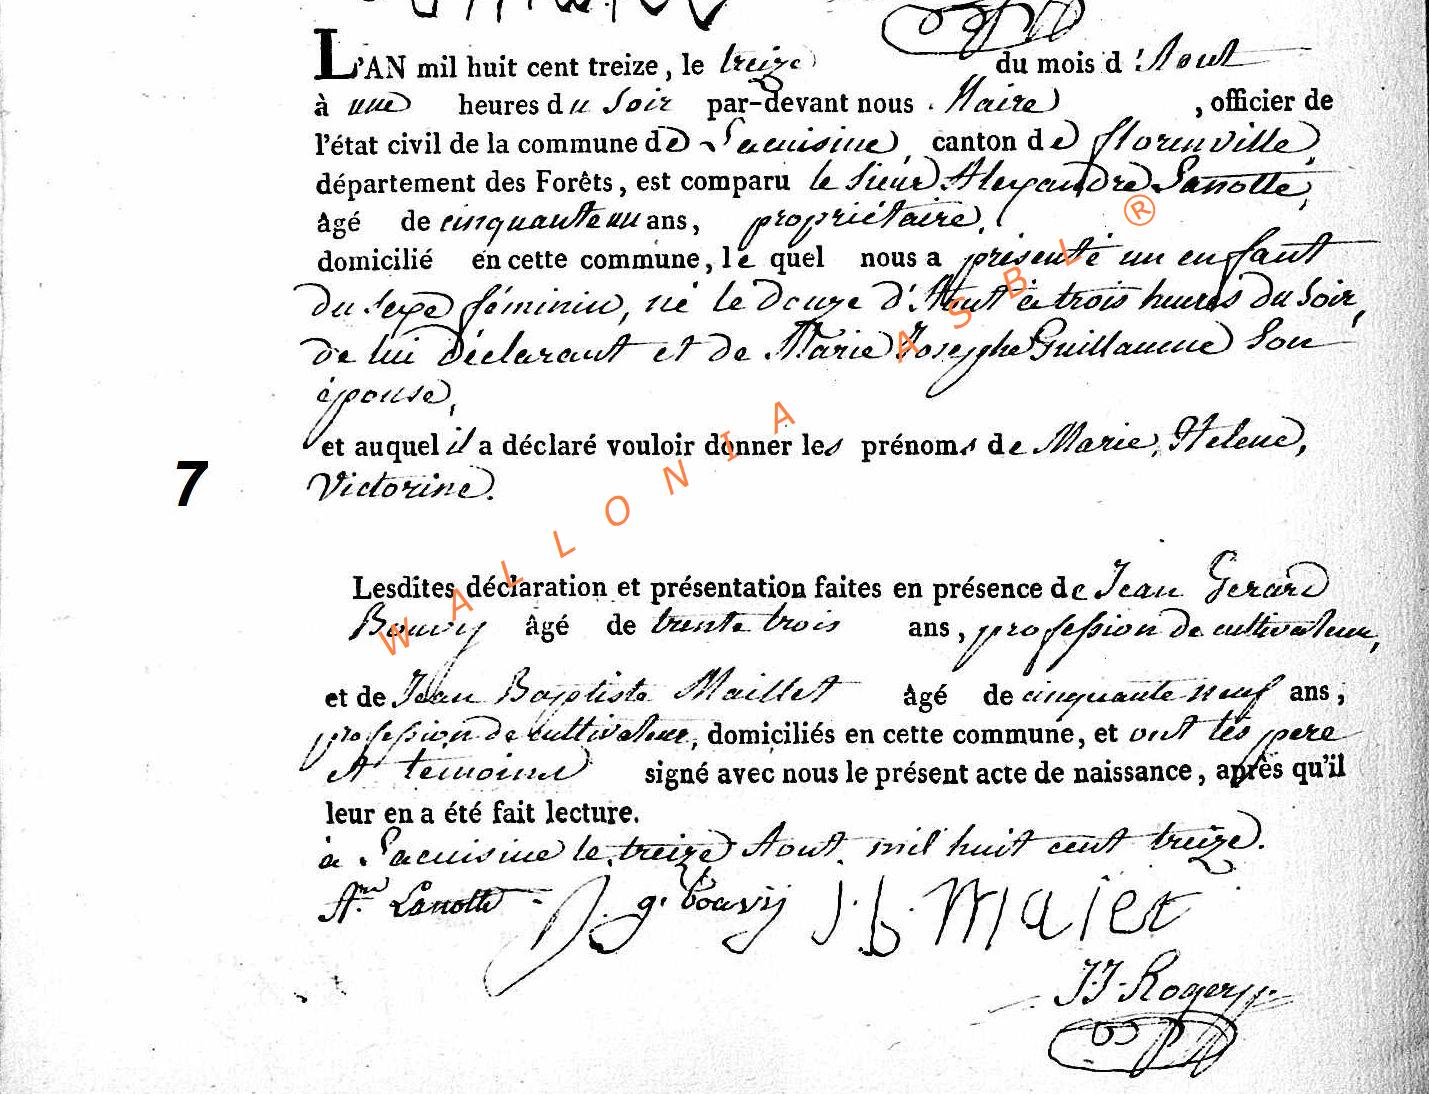 L'AN mil huit cent treize, le treize du mois d'Aout
à une heures du soir par-devant nous Maire, officier de
l'état civil de la commune de Lacuisine, canton de florenville,
département des Forêts, est comparu le sieur Alexandre Lanotte,
âgé de cinquante un ans, propriétaire,
domicilié en cette commune, le quel nous a présenté un enfant
du sexe féminin, né le douze d'Aout à trois heures du soir,
de lui déclarant et de Marie Josephe Guillaume son
épouse,
et auquel il a déclaré vouloir donner les prénoms de Marie, Helene,
7
Victorine.
Lesdites déclaration et présentation faites en présence de Jean Gerard
Bouvy âgé de trente trois ans, profession de cultivateur,
et de Jean Baptiste Maillet âgé de cinquante neuf ans,
profession de cultivateur, domiciliés en cette commune, et ont les pere
et temoins signé avec nous le présent acte de naissance, après qu'il
leur en a été fait lecture.
à Lacuisine le treize Aout mil huit cent treize.
Adre Lanotte J. g. bouvij J. b. Maiet
J J Rogery
WALLONIA ASBL ®